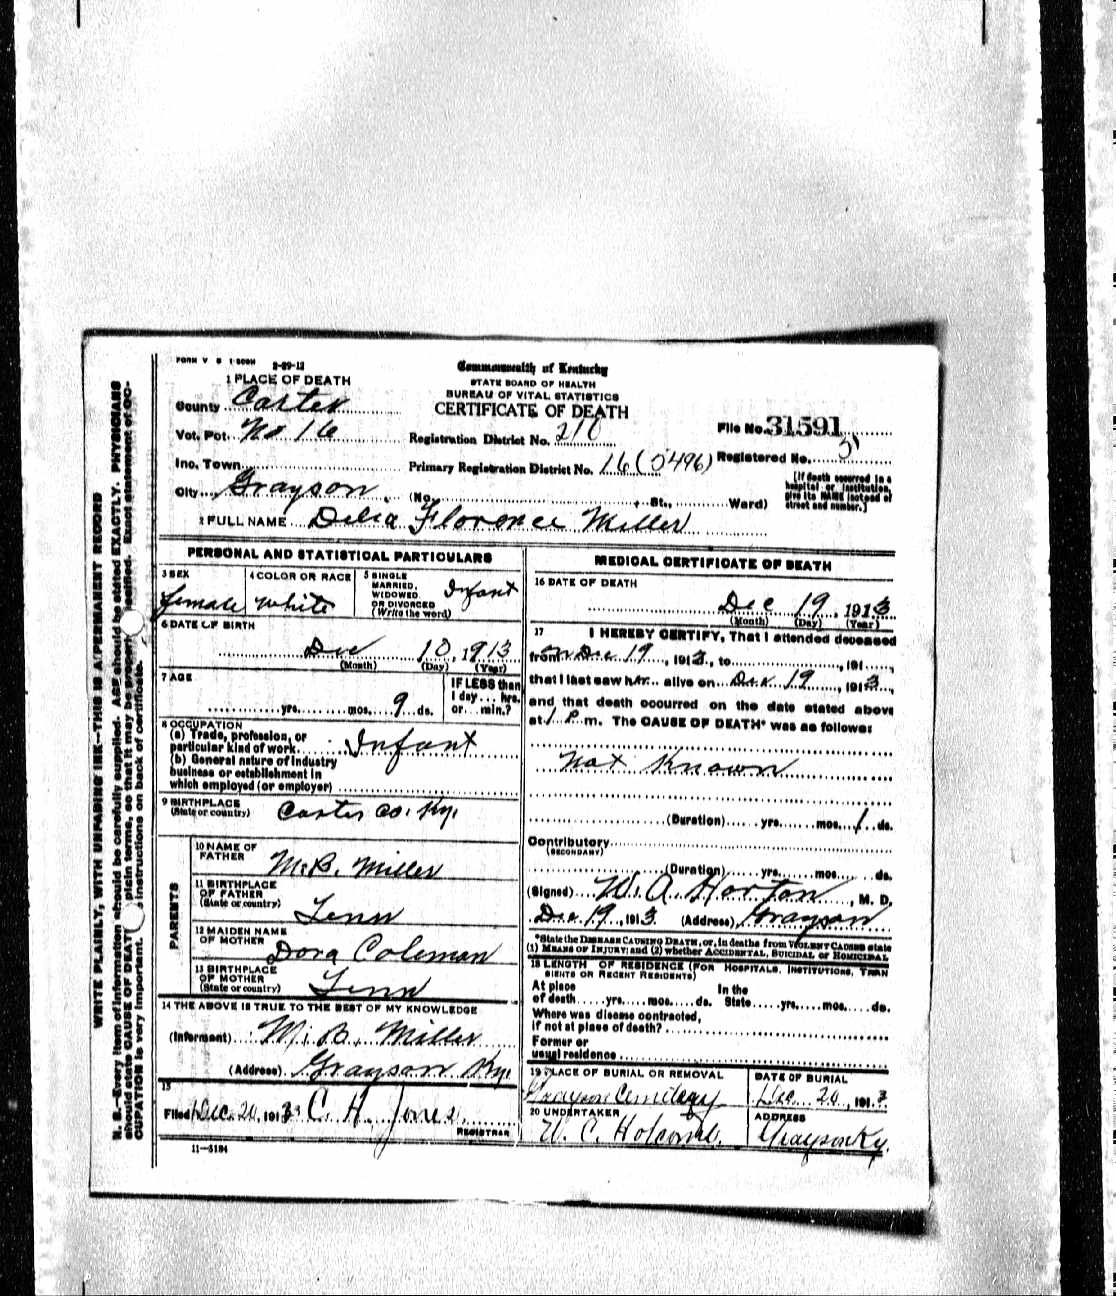 FORM V S 1-500M
2-29-12
Commonwealth of Kentucky
STATE BOARD OF HEALTH
BUREAU OF VITAL STATISTICS
CERTIFICATE OF DEATH
1 PLACE OF DEATH
County Carter
Vot. Pct. No 16
Registration District No. 210
File No. 31591
Inc. Town
Primary Registration District No. 16 (5496)
Registered No.
City Grayson (No. St., Ward)
[If death occurred in a hospital or institution, give its NAME instead of street and number.]
2 FULL NAME Delia Florence Miller
PERSONAL AND STATISTICAL PARTICULARS
3 SEX female
4 COLOR OR RACE White
5 SINGLE MARRIED, WIDOWED OR DIVORCED (Write the word) Infant
6 DATE OF BIRTH
Dec 10, 1913
(Month) (Day) (Year)
7 AGE
yrs. mos. 9 ds.
IF LESS than 1 day... hrs. or... min.?
8 OCCUPATION
(a) Trade, profession, or particular kind of work Infant
(b) General nature of industry business or establishment in which employed (or employer)
9 BIRTHPLACE (State or country) Carter Co. Ky.
PARENTS
10 NAME OF FATHER M. B. Miller
11 BIRTHPLACE OF FATHER (State or country) Tenn
12 MAIDEN NAME OF MOTHER Dora Coleman
13 BIRTHPLACE OF MOTHER (State or country) Tenn
14 THE ABOVE IS TRUE TO THE BEST OF MY KNOWLEDGE
(Informant) M. B. Miller
(Address) Grayson Ky.
15
Filed Dec. 20, 1913 C. H. Jones
REGISTRAR
11—5184
MEDICAL CERTIFICATE OF DEATH
16 DATE OF DEATH
Dec 19, 1913
(Month) (Day) (Year)
17 I HEREBY CERTIFY, That I attended deceased
from on Dec 19, 1913, to , 191 ,
that I last saw her alive on Dec 19, 1913,
and that death occurred on the date stated above
at 1 P. m. The CAUSE OF DEATH* was as follows:
Not Known
(Duration) yrs. mos. 1 ds.
Contributory
(SECONDARY)
(Duration) yrs. mos. ds.
(Signed) W. A. Horton, M. D.
Dec 19, 1913 (Address) Grayson
*State the DISEASE CAUSING DEATH, or, in deaths from VIOLENT CAUSES state
(1) MEANS OF INJURY; and (2) whether ACCIDENTAL, SUICIDAL or HOMICIDAL
18 LENGTH OF RESIDENCE (FOR HOSPITALS, INSTITUTIONS, TRANSIENTS OR RECENT RESIDENTS)
At place of death yrs. mos. ds. In the State yrs. mos. ds.
Where was disease contracted, if not at place of death?
Former or usual residence
19 PLACE OF BURIAL OR REMOVAL
Grayson Cemetery
DATE OF BURIAL
Dec. 20, 1913
20 UNDERTAKER
W. C. Holcomb.
ADDRESS
Grayson Ky.
WRITE PLAINLY, WITH UNFADING INK—THIS IS A PERMANENT RECORD
N. B.—Every item of information should be carefully supplied. AGE should be stated EXACTLY. PHYSICIANS
should state CAUSE OF DEATH plain terms, so that it may be properly classified. Exact statement of OC-
CUPATION is very important. instructions on back of certificate.